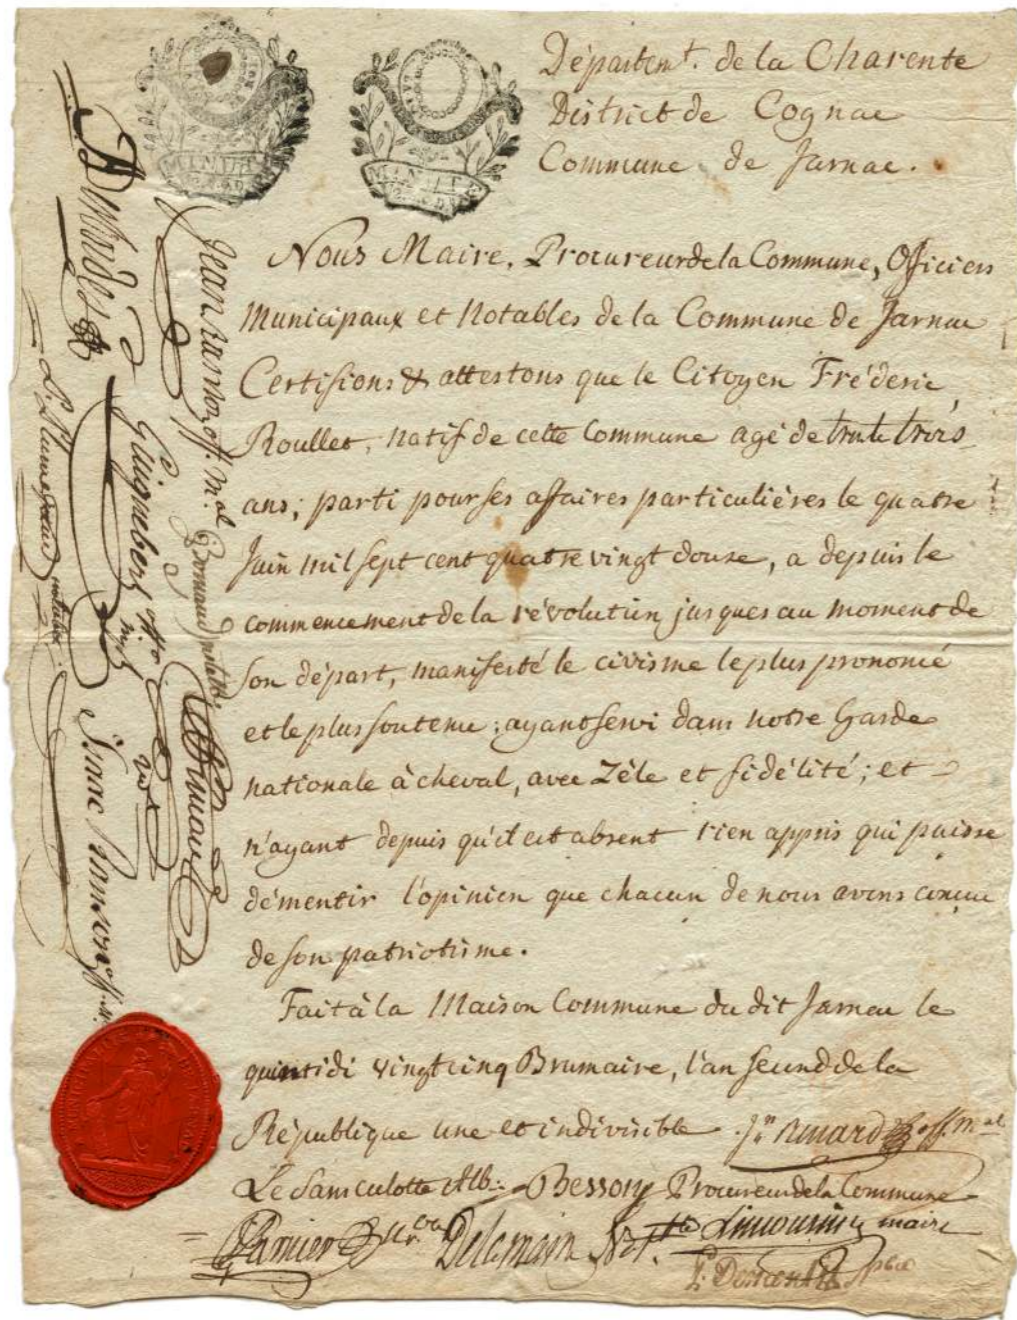 Départem.t de la Charente
District de Cognac
Commune de Jarnac.
Nous Maire, Procureur de la Commune, Officiers
Municipaux et Notables de la Commune de Jarnac
Certifions & attestons que le Citoyen Fréderic
Roullet, natif de cette Commune agé de trente trois
ans; parti pour ses affaires particulières le quatre
Juin mil sept cent quatre vingt douze, a depuis le
commencement de la révolution jusques au moment de
son départ, manifesté le civisme le plus prononcé
et le plus soutenu; ayant servi dans notre Garde
nationale à cheval, avec Zèle et fidélité; et
n'ayant depuis qu'il est absent rien appris qui puisse
démentir l'opinion que chacun de nous avons conçue
de son patriotisme.
Fait à la Maison Commune du dit Jarnac le
quintidi vingt cinq Brumaire, l'an second de la
République une et indivisible. J.n Ruard off. m.al
Le Sans culotte Alb. Besson Procureur de la Commune
Delamain Not. Limouzin maire
Jean Ranson off. m.al
Guignebert off.
Isaac Ranson off. m.
notable
MINUTE
MINUTE